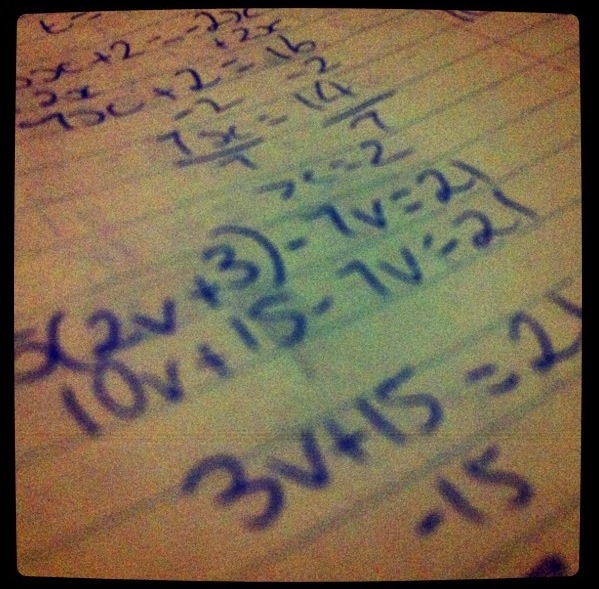 x+2=-2x
+2x
7x+2=16
-2 -2
7x=14
7 7
x=2
5(2v+3)-7v=21
10v+15-7v=21
3v+15=21
-15